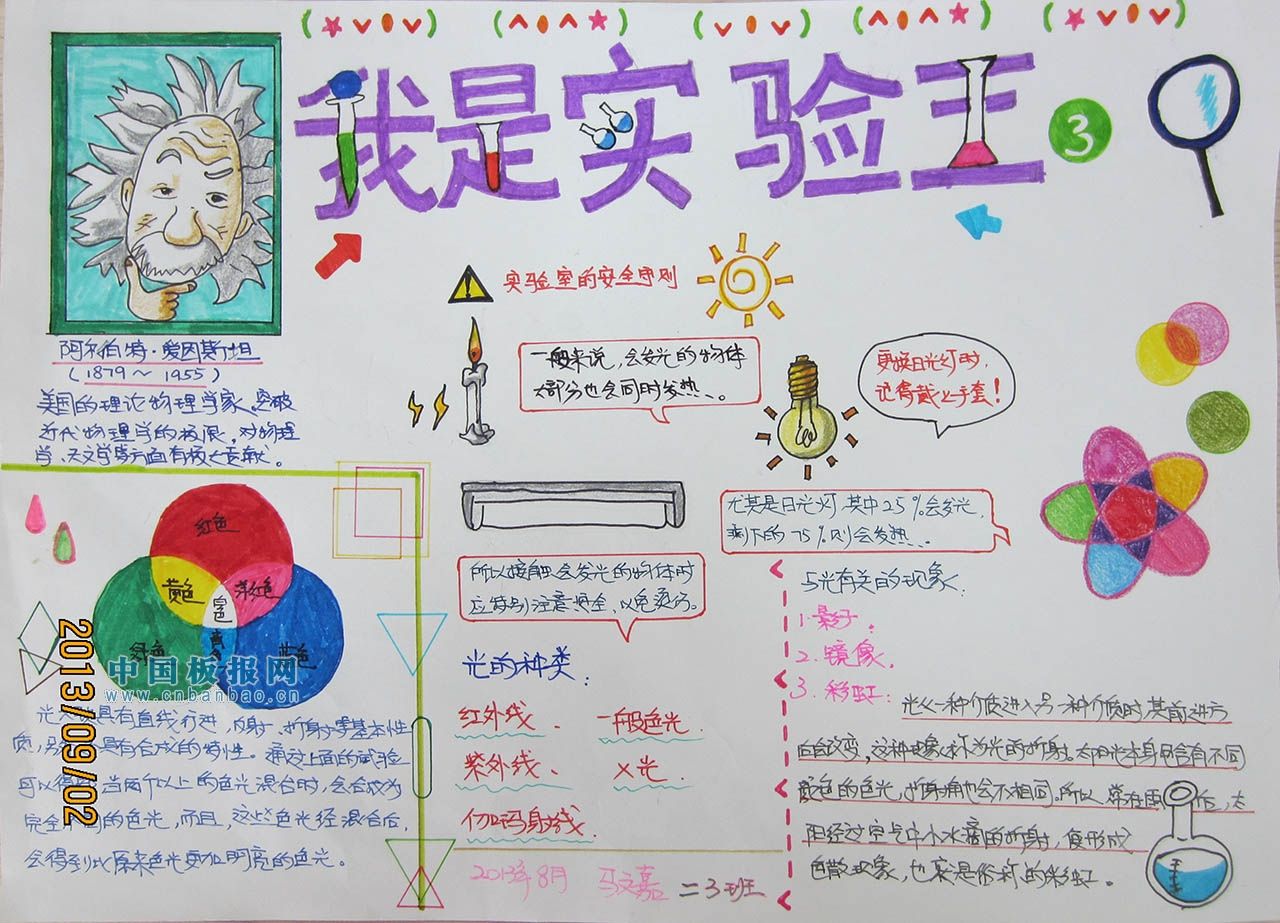 我是实验王
3
阿尔伯特·爱因斯坦
(1879～1955)
美国的理论物理学家、突破
近代物理学的极限,对物理
学、天文学等方面有极大贡献。
实验室的安全守则
一般来说,会发光的物体
大部分也会同时发热、。
更换日光灯时,
记得戴上手套!
尤其是日光灯,其中25%会发光,
剩下的75%则会发热、.
所以接触会发光的物体时
应特别注意安全,以免烫伤。
红色
黄色
洋红色
白色
青色
绿色
蓝色
中国板报网
www.cnbanbao.cn
2013/09/02
具有直线行进、反射、折射等基本性
质,具有合成的特性。通过上面的试验
可以得当两个以上的色光混合时,会合成为
完全不同的色光,而且,这些色光经混合后,
会得到比原来色光更加明亮的色光。
光的种类:
红外线、 一般色光.
紫外线、 X光.
伽玛射线.
2013年8月 马文嘉 二3班
与光有关的现象:
1.影子.
2.镜像.
3.彩虹: 光从一种介质进入另一种介质时,其前进方
向会改变,这种现象称为光的折射。太阳光本身包含有不同
颜色的色光,折射角也会不相同。所以,常在雨后,太
阳经过空气中小水滴的折射,便形成
色散现象,也就是俗称的彩虹。